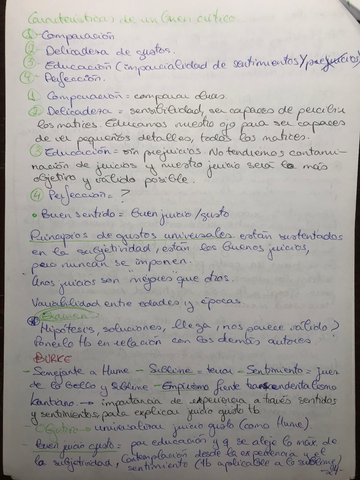 Características de un buen crítico.
① - Comparación
② - Delicadeza de gustos.
③ - Educación (imparcialidad de sentimientos y/prejuicios)
④ - Perfección.
① Comparación = comparar obras.
② Delicadeza = sensibilidad, ser capaces de percibir
los matices. Educamos nuestro ojo para ser capaces
de ver pequeños detalles, todos los matices.
③ Educación = sin prejuicios. No tendremos contami-
nación de juicios y nuestro juicio será lo más
objetivo y válido posible.
④ Perfección = ?
• Buen sentido = buen juicio/gusto
Principios de gustos universales están sustentados
en la subjetividad, están los buenos juicios,
pero nuncan se imponen.
Unos juicios son "mejores" que otros.
Variabilidad entre edades y épocas
Examen
Hipótesis, soluciones, llega, ¿nos parece válido?
Ponerlo tb en relación con los demás autores.
BURKE
- Semejante a Hume - Sublime = terror - Sentimiento = juez
de lo bello y sublime - Empirismo frente transcendentalismo
kantiano → importancia de experiencia a través sentidos
y sentimientos, para explicar juicio gusto tb
Objetivo = universalizar juicio gusto (como Hume)
- buen juicio gusto = por educación y q se aleje lo más de
la subjetividad, contemplación desde la experiencia y el
sentimiento (tb aplicable a lo sublime)